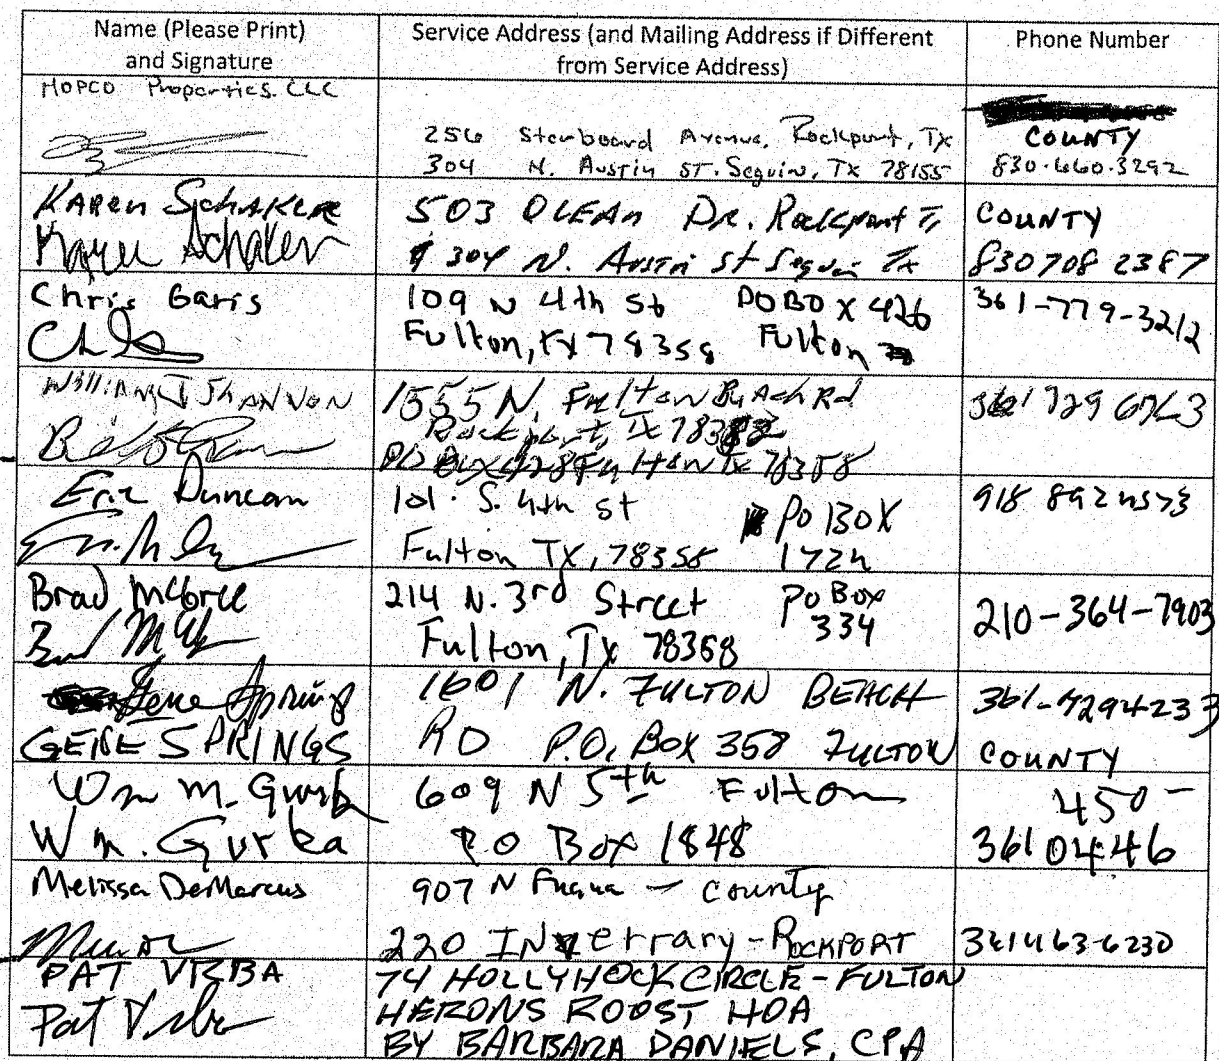 Name (Please Print)
and Signature
Service Address (and Mailing Address if Different
from Service Address)
Phone Number
HOPCO Properties. LLC
256 Starboard Avenue, Rockport, Tx
304 N. Austin ST. Seguin, Tx 78155
COUNTY
830.660.3292
Karen Schakere
Karen Schaker
503 OLEAn Dr. Rockport Tx
304 N. Austin St Seguin Tx
COUNTY
830 708 2387
Chris Garis
109 N 4th St PO BOX 426
Fulton, TX 78358 Fulton
361-779-3212
William J ShANNON
1555 N. Fulton BeAch Rd
Rockport, Tx 78382
PO Box 428 Fulton Tx 78358
361 729 6763
Eric Duncan
101 S. 4th St PO BOX
Fulton TX, 78358 1724
918 892 4573
Brad
214 N. 3rd Street PO Box
Fulton, Tx 78358 334
210-364-7903
Gene Springs
GENE SPRINGS
1601 N. FULTON BEACH
RD P.O. BOX 358 FULTON
361-7294233
COUNTY
Wm M. Gurka
Wm. Gurka
609 N 5th Fulton
P.O Box 1848
450-
361 0446
Melissa DeMarcus
907 N Fuqua - County
220 INverrary - ROCKPORT
361 463-6230
PAT VRBA
Pat Vrba
74 HOLLYHOCK CIRCLE - FULTON
HERONS ROOST HOA
BY BARBARA DANIELS, CPA